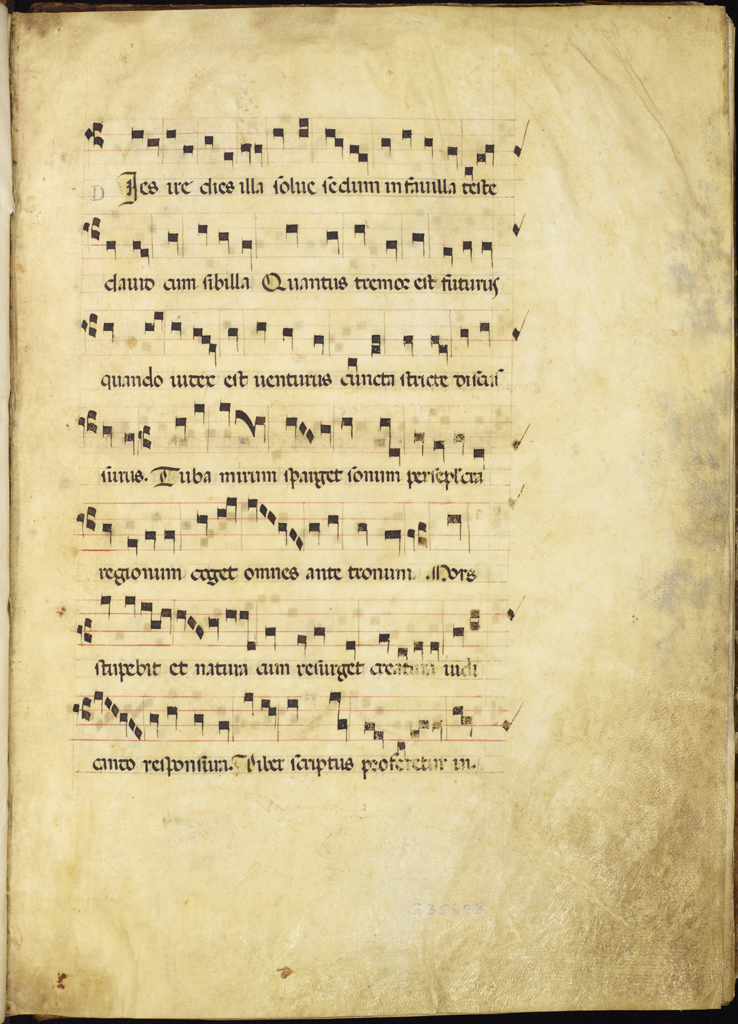 D Ies ire dies illa solue seclum in fauilla teste
dauid cum sibilla Quantus tremor est futurus
quando iudex est uenturus cuncta stricte discus
surus. Tuba mirum sparget sonum per sepulcra
regionum coget omnes ante tronum. Mors
stupebit et natura cum resurget creatura iudi
canto responsura. Liber scriptus proferetur in.